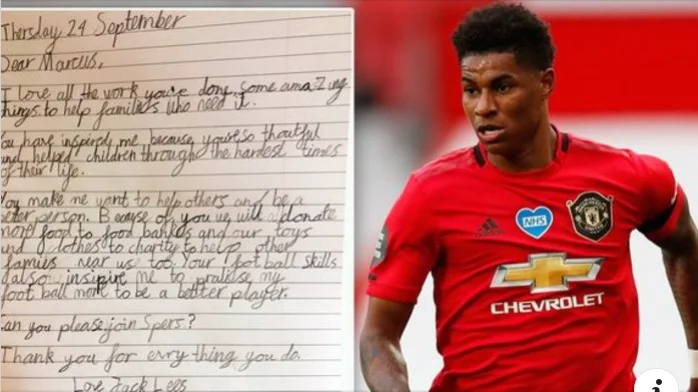 Thersday 24 September
Dear Marcus,
I love all the work you've done, some ama-zing
things to help families who need it.
You have inspired me because you're so thoutful
and helped children through the hardest times
of their life.
You make me want to help others and be a
better person. Because of you we will donate
more food to food bankes and our toys
and clothes to charity to help other
families near us too. Your foot ball skills
also insipire me to pratise my
foot ball more to be a better player.
Can you please join Spers?
Thank you for erry thing you do.
Love Zack Lees
NHS
CHEVROLET
i